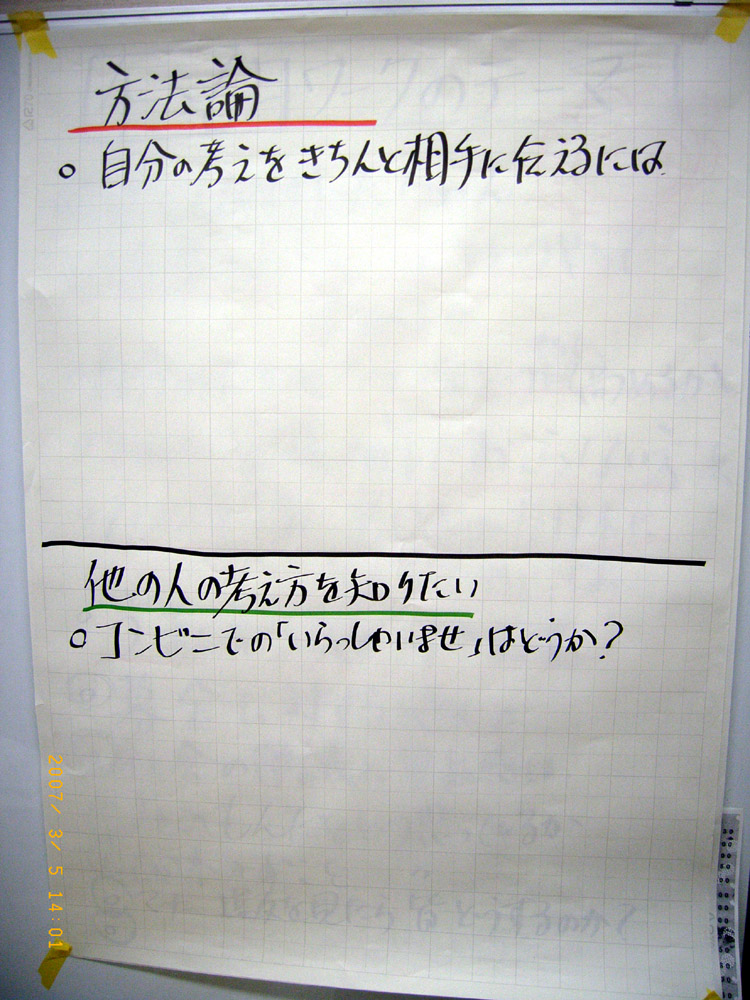 方法論
○ 自分の考えをきちんと相手に伝えるには
他の人の考え方を知りたい
○ コンビニでの「いらっしゃいませ」はどうか?
2007/ 3/ 5 14:01